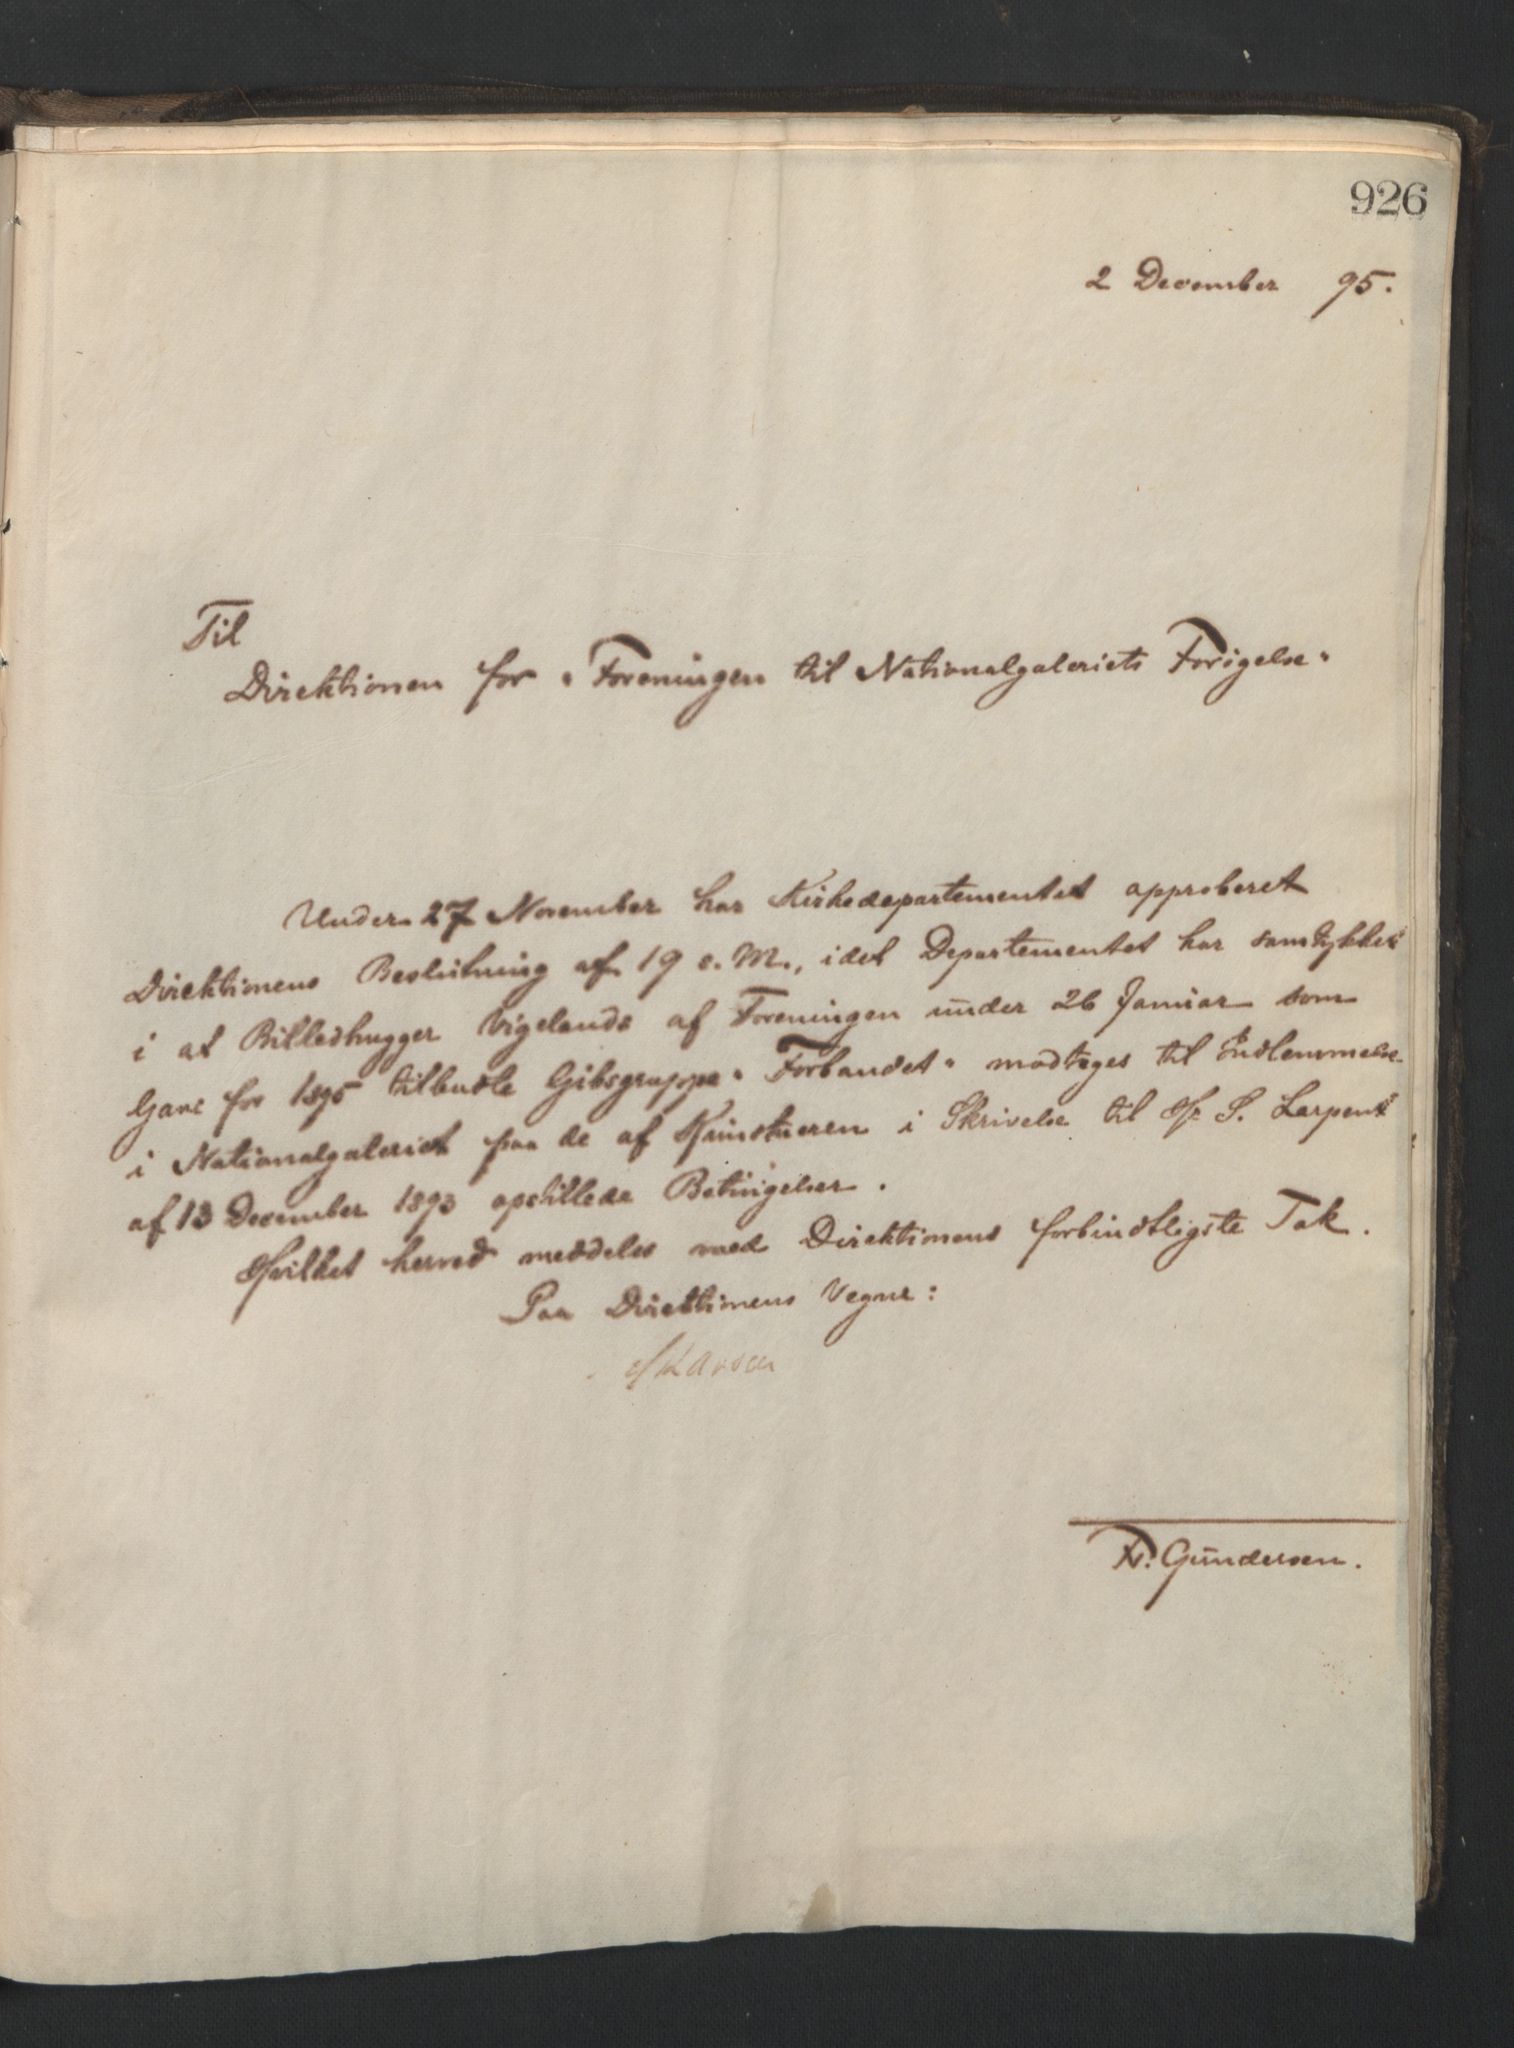 926
2 December 95.
Til
Direktionen for "Foreningen til Nationalgaleriets Forøgelse"
Under 27 November har Kirkedepartementet approberet
Direktionens Beslutning af 19 s. M., idet Departementet har samtykket
i at Billedhugger Vigelands af Foreningen under 26 Januar som
Gave for 1895 tilbudte Gibsgruppe "Forbandet" modtages til Indlemmelse
i Nationalgaleriet paa de af Kunstneren i Skrivelse til Hr S. Larpent
af 13 December 1893 opstillede Betingelser.
Hvilket herved meddeles med Direktionens forbindtligste Tak.
Paa Direktionens Vegne:
Fr. Gundersen.